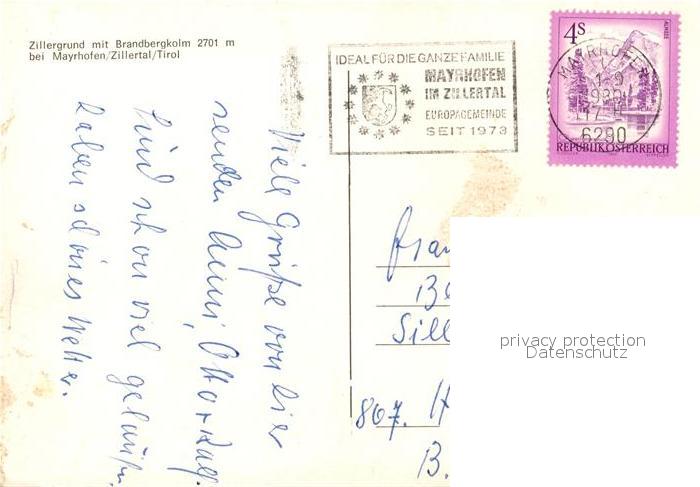 Zillergrund mit Brandbergkolm 2701 m
bei Mayrhofen/Zillertal/Tirol
IDEAL FÜR DIE GANZE FAMILIE
MAYRHOFEN
IM ZILLERTAL
EUROPAGEMEINDE
SEIT 1973
4S
ALMSEE
MAYRHOFEN
6290
REPUBLIK ÖSTERREICH
Viele Grüße von hier
senden Anni, Otto +
Sind schon viel gelaufen.
haben schönes Wetter.
Frau
Sill
807. H
B.
privacy protection
Datenschutz